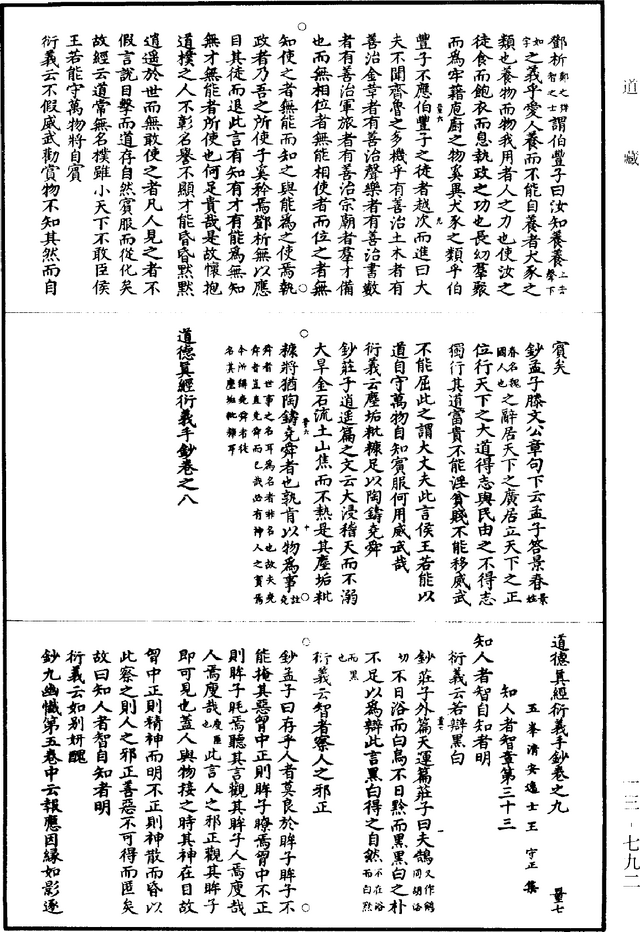 道藏
鄧析鄭之辯智之士謂伯豐子曰汝知養養上去聲下
如字之義乎愛人養而不能自養者犬豕之
類也養物而物我用者人之力也使汝之
徒食而飽衣而息執政之功也長幼羣聚
而爲牢藉庖廚之物奚異犬豕之類乎伯
豐子不應伯豐子之徒者越次而進曰大
夫不聞齊魯之多機乎有善治土木者有
善治金革者有善治聲樂者有善治書數
者有善治軍旅者有善治宗朝者羣才備
也而無相位者無能相使者而位之者無
知使之者無能而知之與能爲之使焉執
政者乃吾之所使子奚矜焉鄧析無以應
目其徒而退此言有知有才有能爲無知
無才無能者所使也何足貴哉是故懷抱
道樸之人不彰名譽不顯才能昏昏默默
逍遥於世而無敢使之者凡人見之者不
假言說目擊而道存自然賓服而從化矣
故經云道常無名樸雖小天下不敢臣侯
王若能守萬物將自賓
衍義云不假威武勸賞物不知其然而自
賓矣
鈔孟子滕文公章句下云孟子答景春景姓
春名魏國人也之辭居天下之廣居立天下之正
位行天下之大道得志與民由之不得志
獨行其道富貴不能淫貧賤不能移威武
不能屈此之謂大丈夫此言侯王若能以
道自守萬物自知賓服何用威武哉
衍義云塵垢粃糠足以陶鑄堯舜
鈔莊子逍遥篇之文云大浸稽天而不溺
大旱金石流土山焦而不熱是其塵垢粃
糠將猶陶鑄堯舜者也孰肯以物爲事註堯
舜者世事之名耳爲名者非名也故夫堯
舜者豈直堯舜而已哉必有神人之實焉
今所稱堯舜者徒
名其塵垢粃糠耳
道德真經衍義手鈔卷之八
道德真經衍義手鈔卷之九 量七
五峯清安逸士王守正集
知人者智章第三十三
知人者智自知者明
衍義云若辯黑白
鈔莊子外篇天運篇莊子曰夫鵠又作鶴同胡洛
切不日浴而白烏不日黔而黑黑白之朴
不足以爲辯此言黑白得之自然不在浴而白點
而黑也
衍義云智者察人之邪正
鈔孟子曰存乎人者莫良於眸子眸子不
能掩其惡胷中正則眸子瞭焉胷中不正
則眸子眊焉聽其言觀其眸子人焉廋哉
人焉廋哉廋匿也此言人之邪正觀其眸子
即可見也蓋人與物接之時其神在目故
胷中正則精神而明不正則神散而昏以
此察之則人之邪正善惡不可得而匿矣
故曰知人者智自知者明
衍義云如别妍醜
鈔九幽懺第五卷中云報應因緣如影逐
一三-七九二